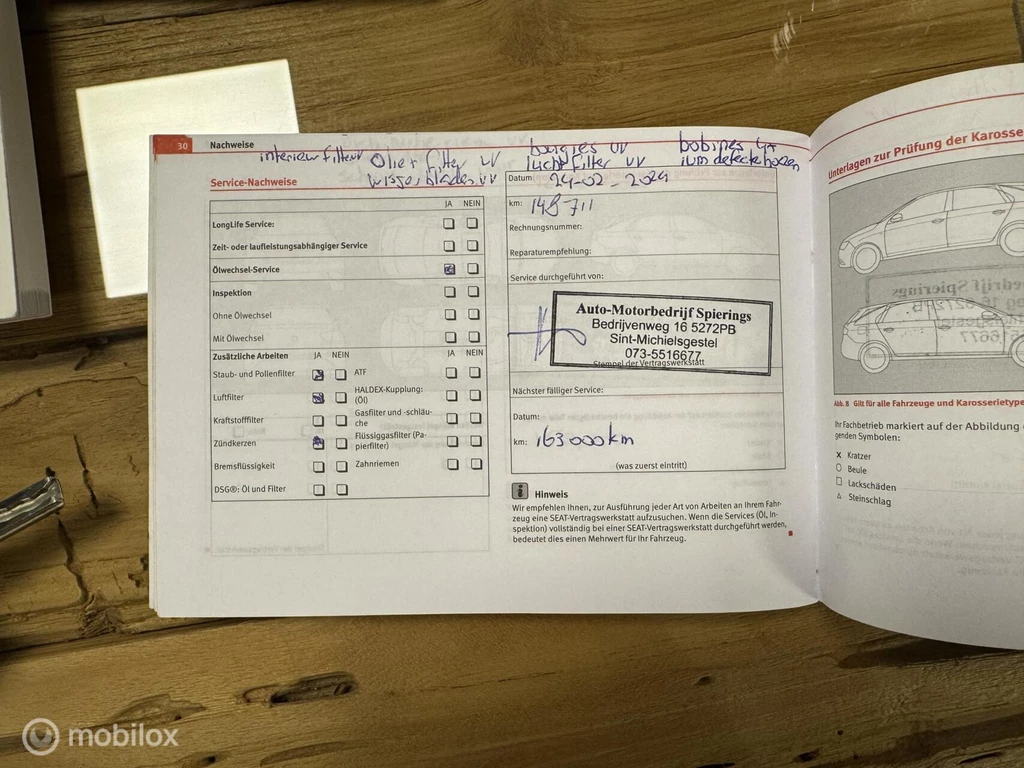 30 Nachweise
interieur filter Olie filter VV bougies VV bobines
wisserbladen VV lucht filter VV
Service-Nachweise
JA NEIN
LongLife Service:
Zeit- oder laufleistungsabhängiger Service
Ölwechsel-Service
Inspektion
Ohne Ölwechsel
Mit Ölwechsel
Zusätzliche Arbeiten JA NEIN JA NEIN
Staub- und Pollenfilter ATF
Luftfilter HALDEX-Kupplung:
(Öl)
Kraftstofffilter Gasfilter und -schläu-
che
Zündkerzen Flüssiggasfilter (Pa-
pierfilter)
Bremsflüssigkeit Zahnriemen
DSG®: Öl und Filter
Datum: 24-02-2024
km: 148711
Rechnungsnummer:
Reparaturempfehlung:
Service durchgeführt von:
Auto-Motorbedrijf Spierings
Bedrijvenweg 16 5272PB
Sint-Michielsgestel
073-5516677
Stempel der Vertragswerkstatt
Nächster fälliger Service:
Datum:
km: 163000km
(was zuerst eintritt)
i Hinweis
Wir empfehlen Ihnen, zur Ausführung jeder Art von Arbeiten an Ihrem Fahr-
zeug eine SEAT-Vertragswerkstatt aufzusuchen. Wenn die Services (Öl, In-
spektion) vollständig bei einer SEAT-Vertragswerkstatt durchgeführt werden,
bedeutet dies einen Mehrwert für Ihr Fahrzeug.
Unterlagen zur Prüfung der Karosse
Abb. 8 Gilt für alle Fahrzeuge und Karosserietype
Ihr Fachbetrieb markiert auf der Abbildung
genden Symbolen:
X Kratzer
O Beule
□ Lackschäden
△ Steinschlag
mobilox